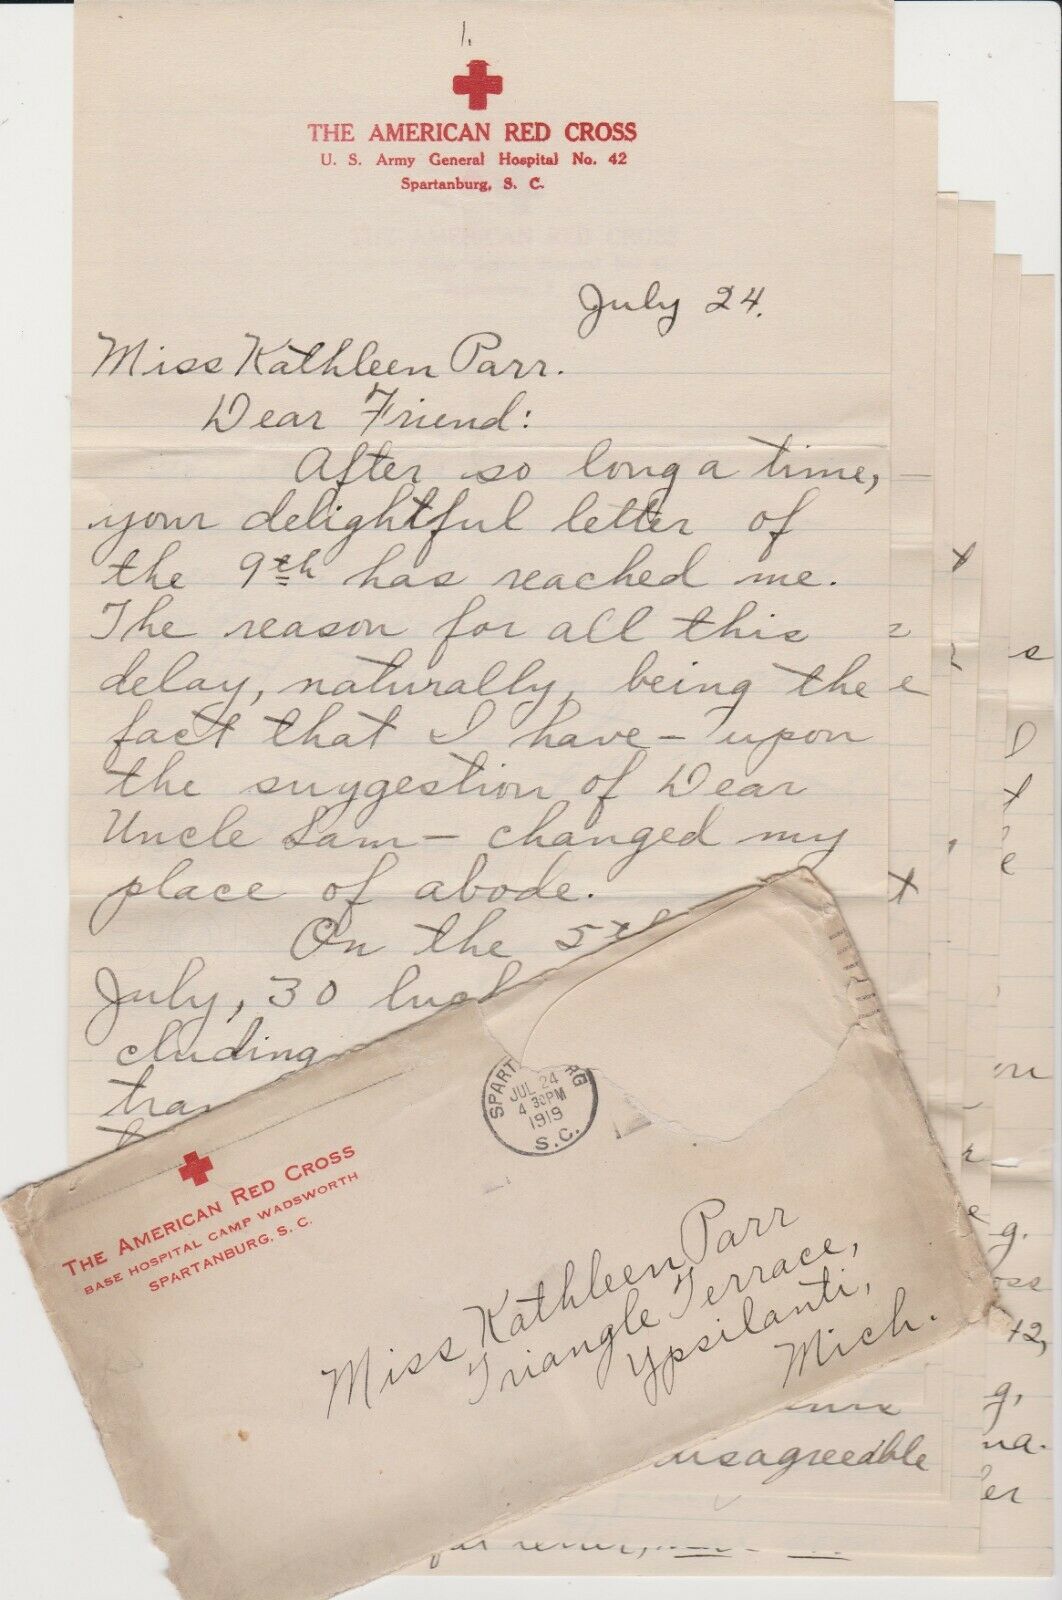 1.
THE AMERICAN RED CROSS
U. S. Army General Hospital No. 42
Spartanburg, S. C.
July 24.
Miss Kathleen Parr.
Dear Friend:
After so long a time,
your delightful letter of
the 9th has reached me.
The reason for all this
delay, naturally, being the
fact that I have – upon
the suggestion of Dear
Uncle Sam – changed my
place of abode.
On the 5th
July, 30
cluding
THE AMERICAN RED CROSS
BASE HOSPITAL CAMP WADSWORTH
SPARTANBURG, S. C.
JUL 24
4 30PM
1919
S.C.
Miss Kathleen Parr
Triangle Terrace,
Ypsilanti,
Mich.
disagreeable